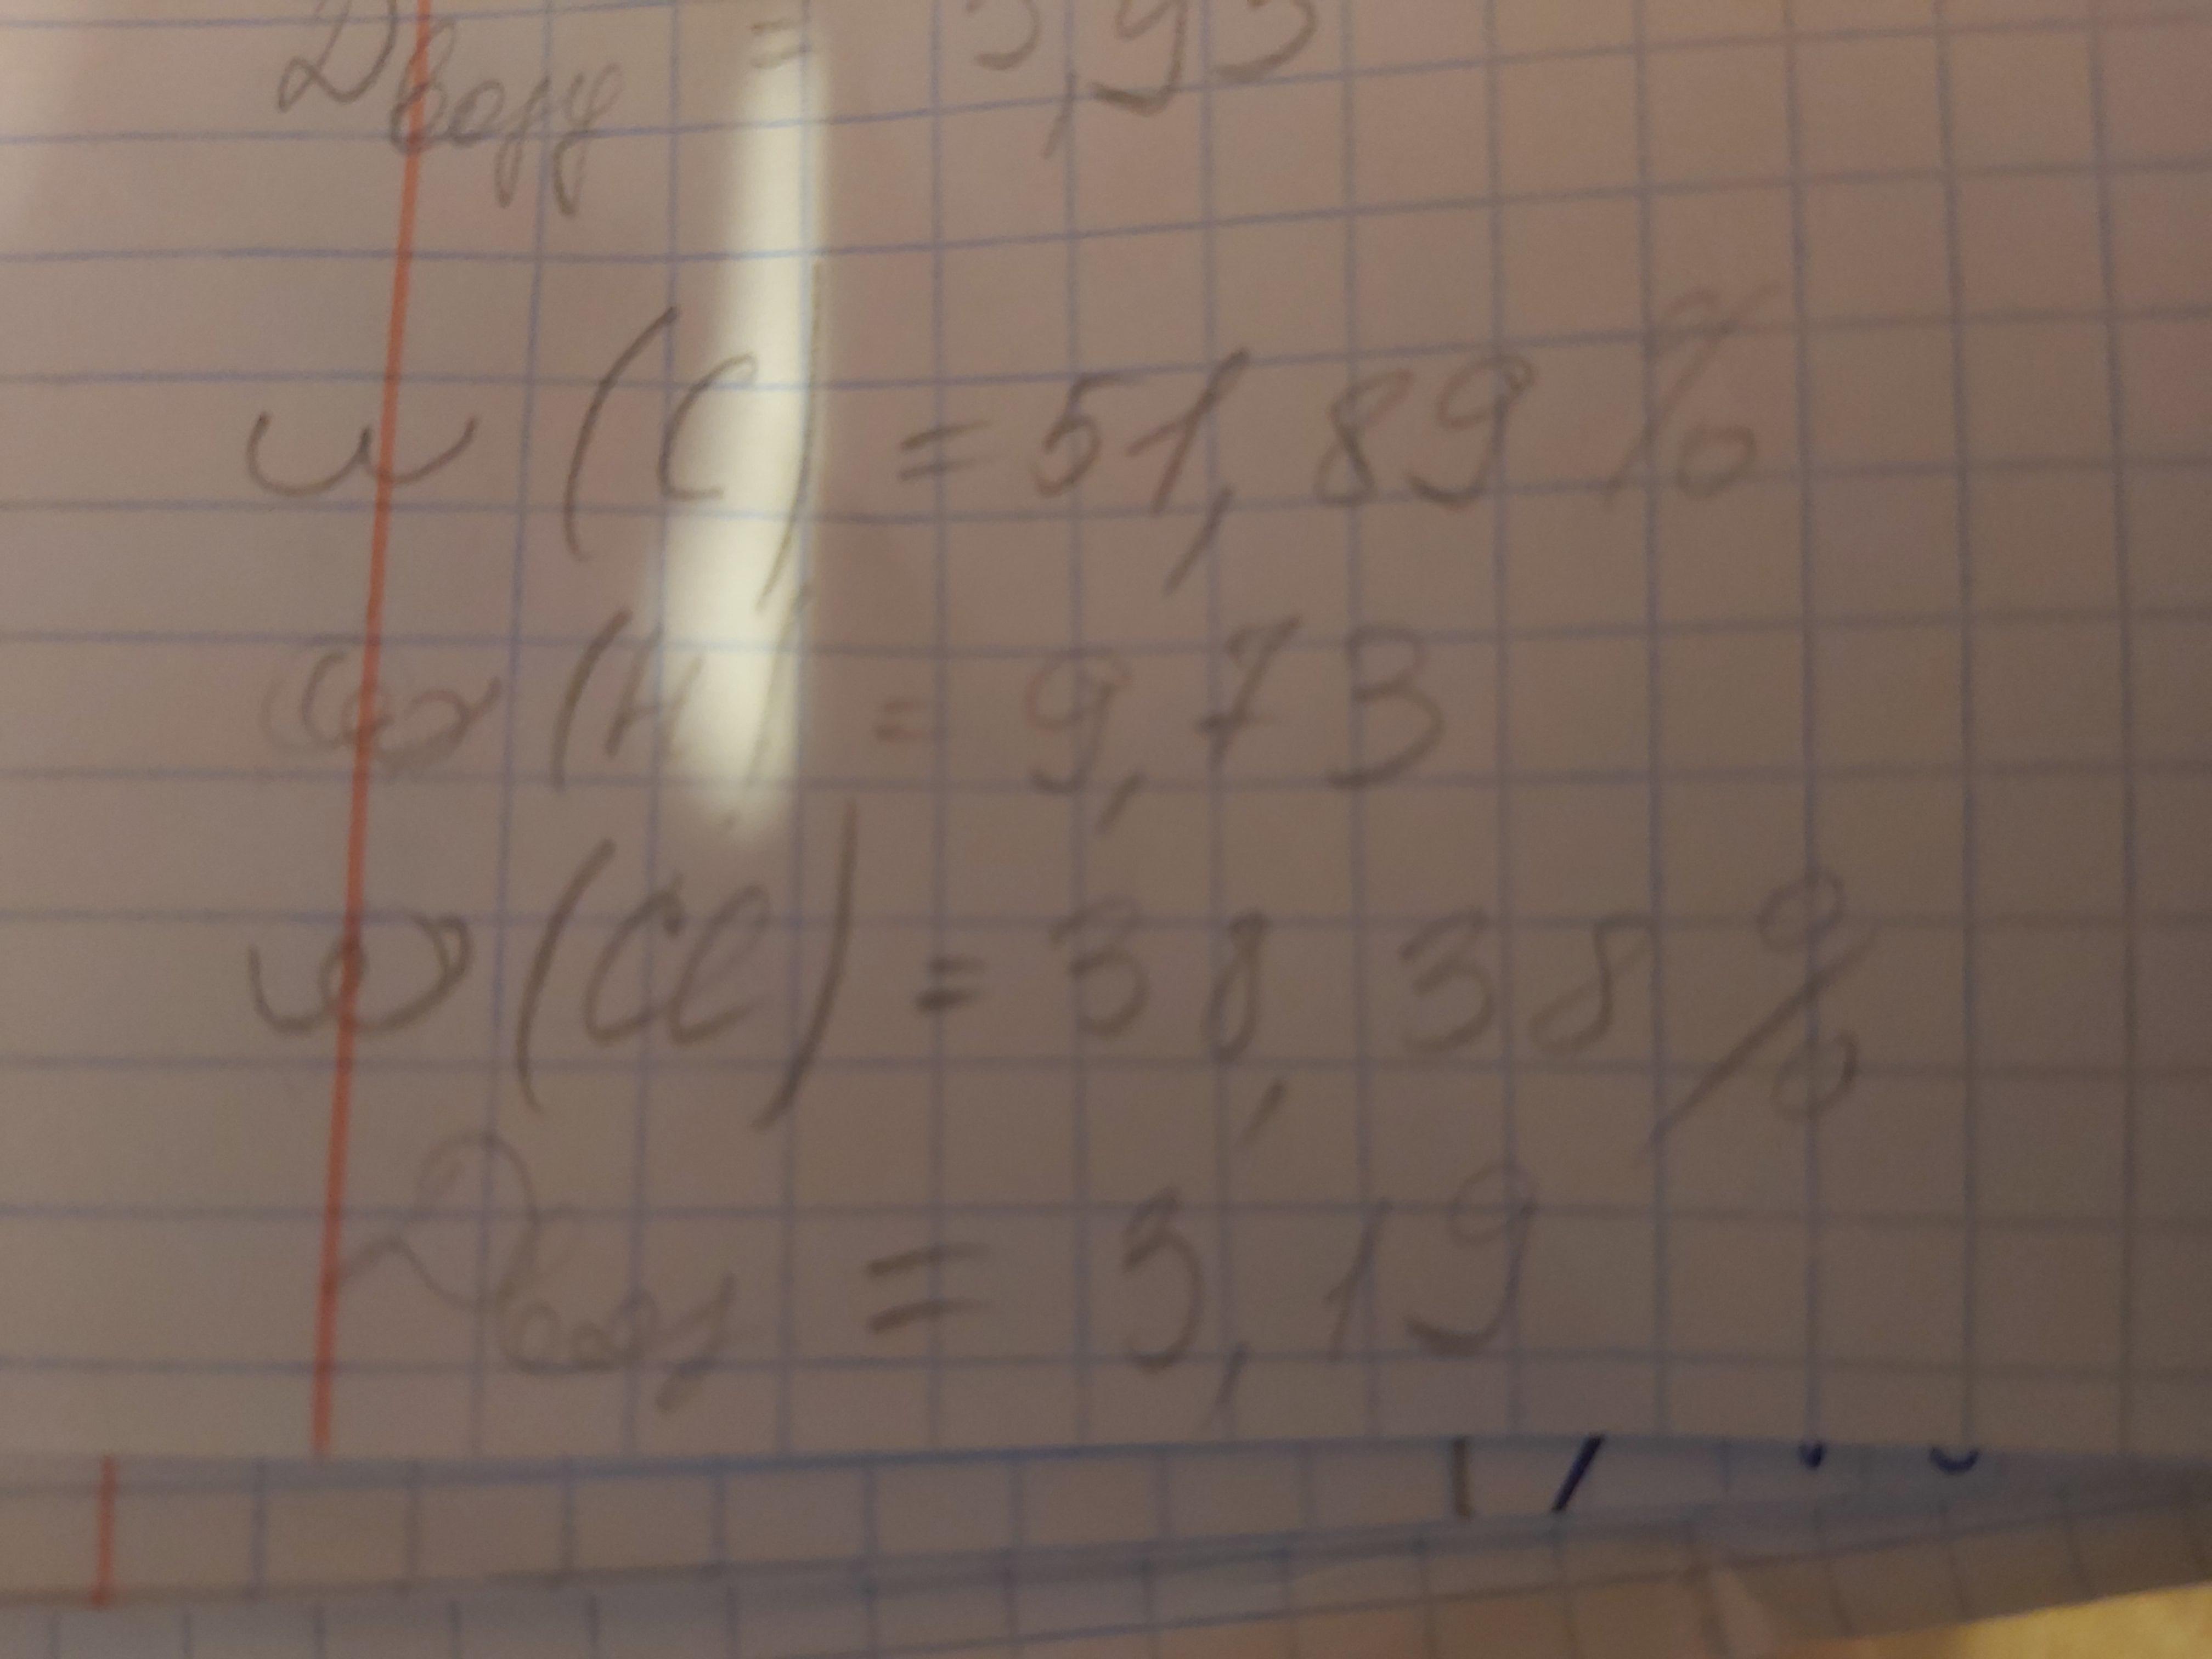 Dвозду = 3,93
w (C) = 51,89 %
w (H) = 9,73
w (Cl) = 38,38 %
Dвозд = 3,19